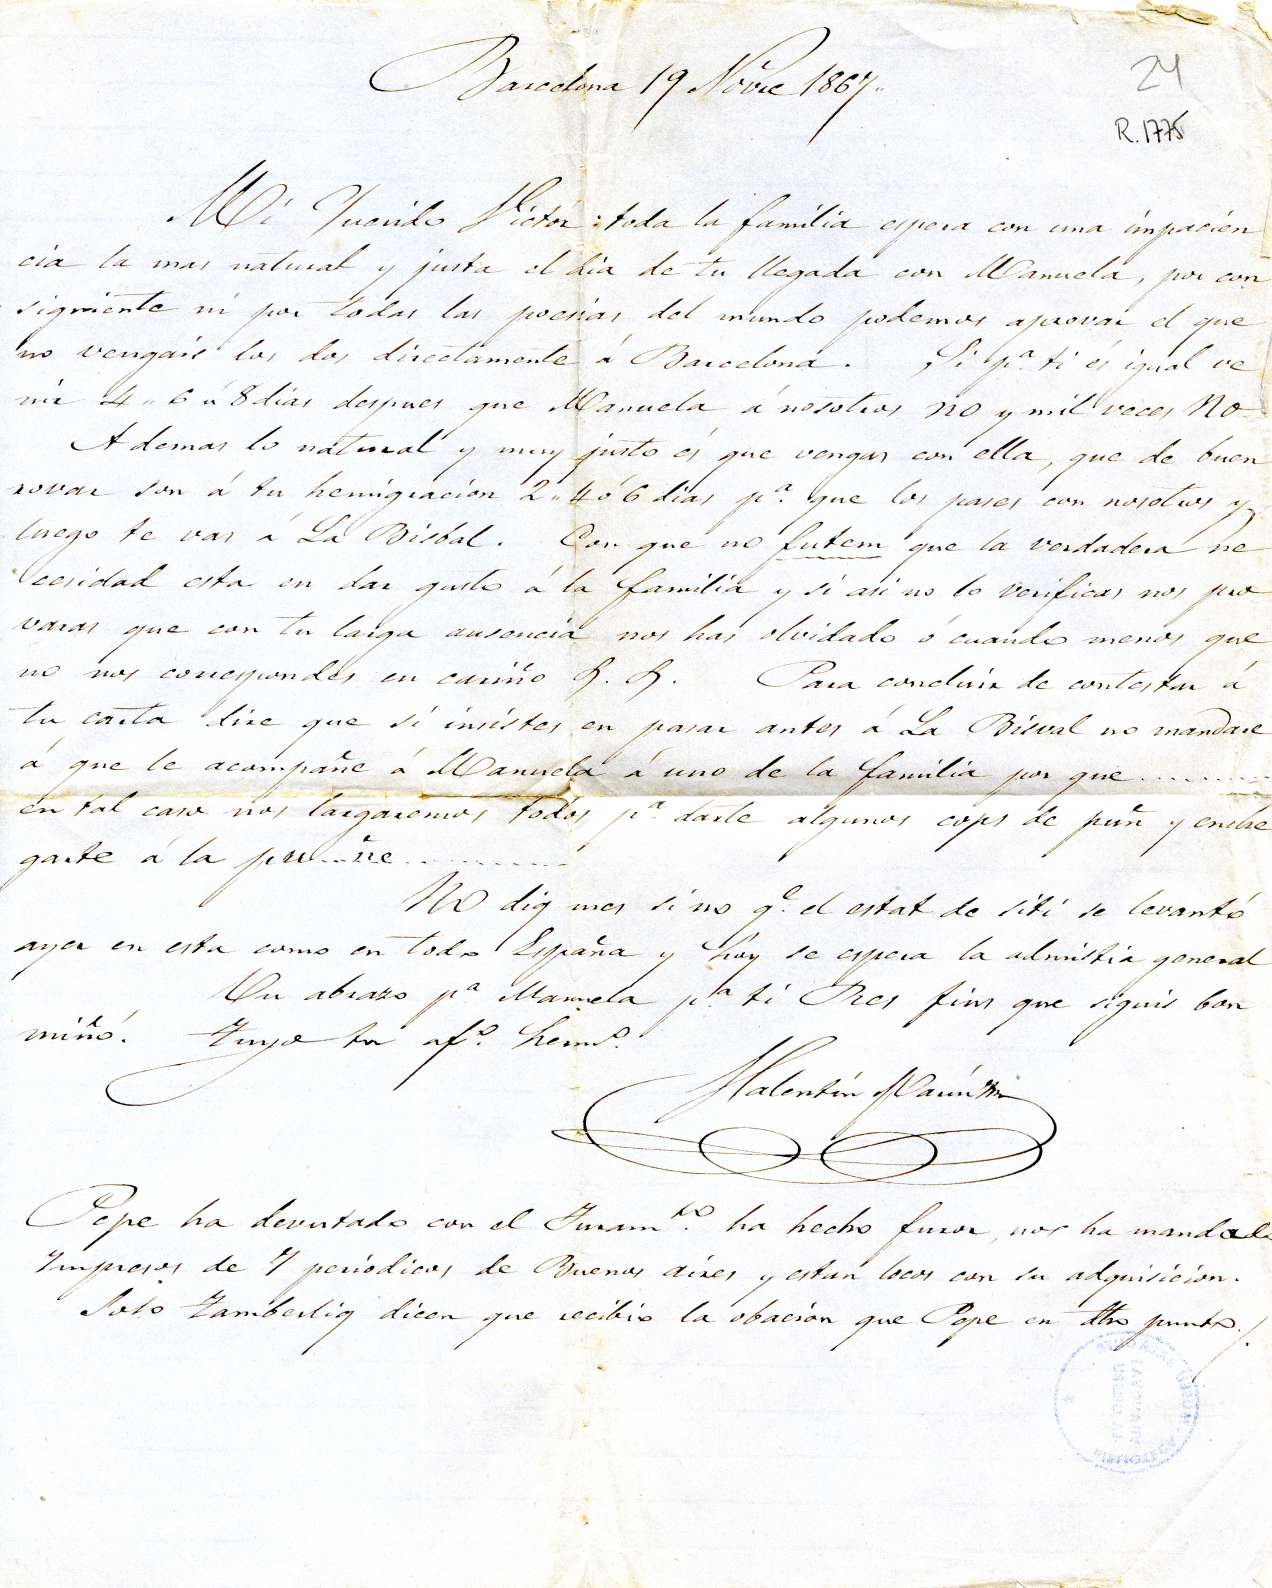 Barcelona 19 Novre 1867..
24
R.1775
Mi Querido Victór: toda la família espera con una ímpacien
cia la mas natural y justa el dia de tu llegada con Manuela, por con
siguiente ni por todas las poesias del mundo podemos aprovar el que
no vengais los dos directamente á Barcelona. Si pª. ti és igual ve
nir 4.. 6 ú 8 dias despues que Manuela á nosotros no y mil veces No
Ademas lo natural y muy justo és que vengas con ella, que de buen
rovar son á tu hemigración 2.. 4 ó 6 dias pª. que los pases con nosotros y
luego te vas á La Bisbal. Con que no futem que la verdadera ne
cesidad esta en dar gusto á la família y si asi no lo verificas nos pro
varas que con tu larga ausencia nos has olvidado ó cuando menos que
no nos correspondes en cariño &. &. Para concluir de contestar á
tu carta dire que si insístes en pasar antes á La Bisval no mandare
á que le acompañe á Manuela á uno de la família por que ............
en tal caso nos largaremos todos pª. darte algunos cops de puñ y entre
garte á la pu...ñe............
No dig mes sino qe. el estat de siti se levantó
ayer en esta como en toda España y hoy se espera la admistia general
Un abrazo pª Manuela pª ti Pres fins que siguis bon
miñó. Tuyo tu afº. hermº.
Valentín
Pepe ha devutado con el Juramto. ha hecho furor, nos ha mandado
Impresos de 7 periódicos de Buenos aires y estan locos con su adquisicion.
Solo Tamberliq dicen que recibio la obación que Pepe en dho punto./.